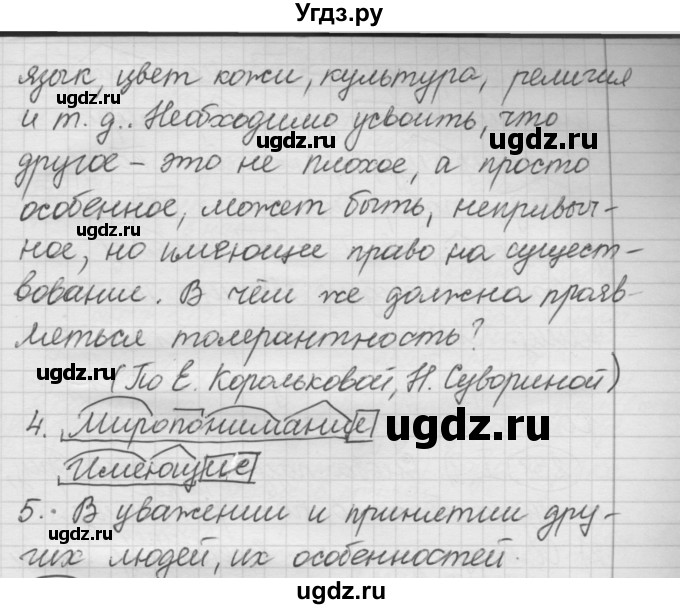 Угдз.ру
язык, цвет кожи, культура, религия
и т. д.. Необходимо усвоить, что
другое – это не плохое, а просто
особенное, может быть, непривыч-
ное, но имеющее право на сущест-
вование. В чём же должна прояв-
ляться толерантность?
(По Е. Корольковой, Н. Сувориной)
4. Миропонимание
Имеющие
5.. В уважении и принятии дру-
гих людей, их особенностей.
gdz.ru
ugdz.ru
ugdz.ru
ugdz.ru
ugdz.ru
ugdz.ru
ugdz.ru
ugdz.ru
ugdz.ru
ugdz.ru
ugdz.ru